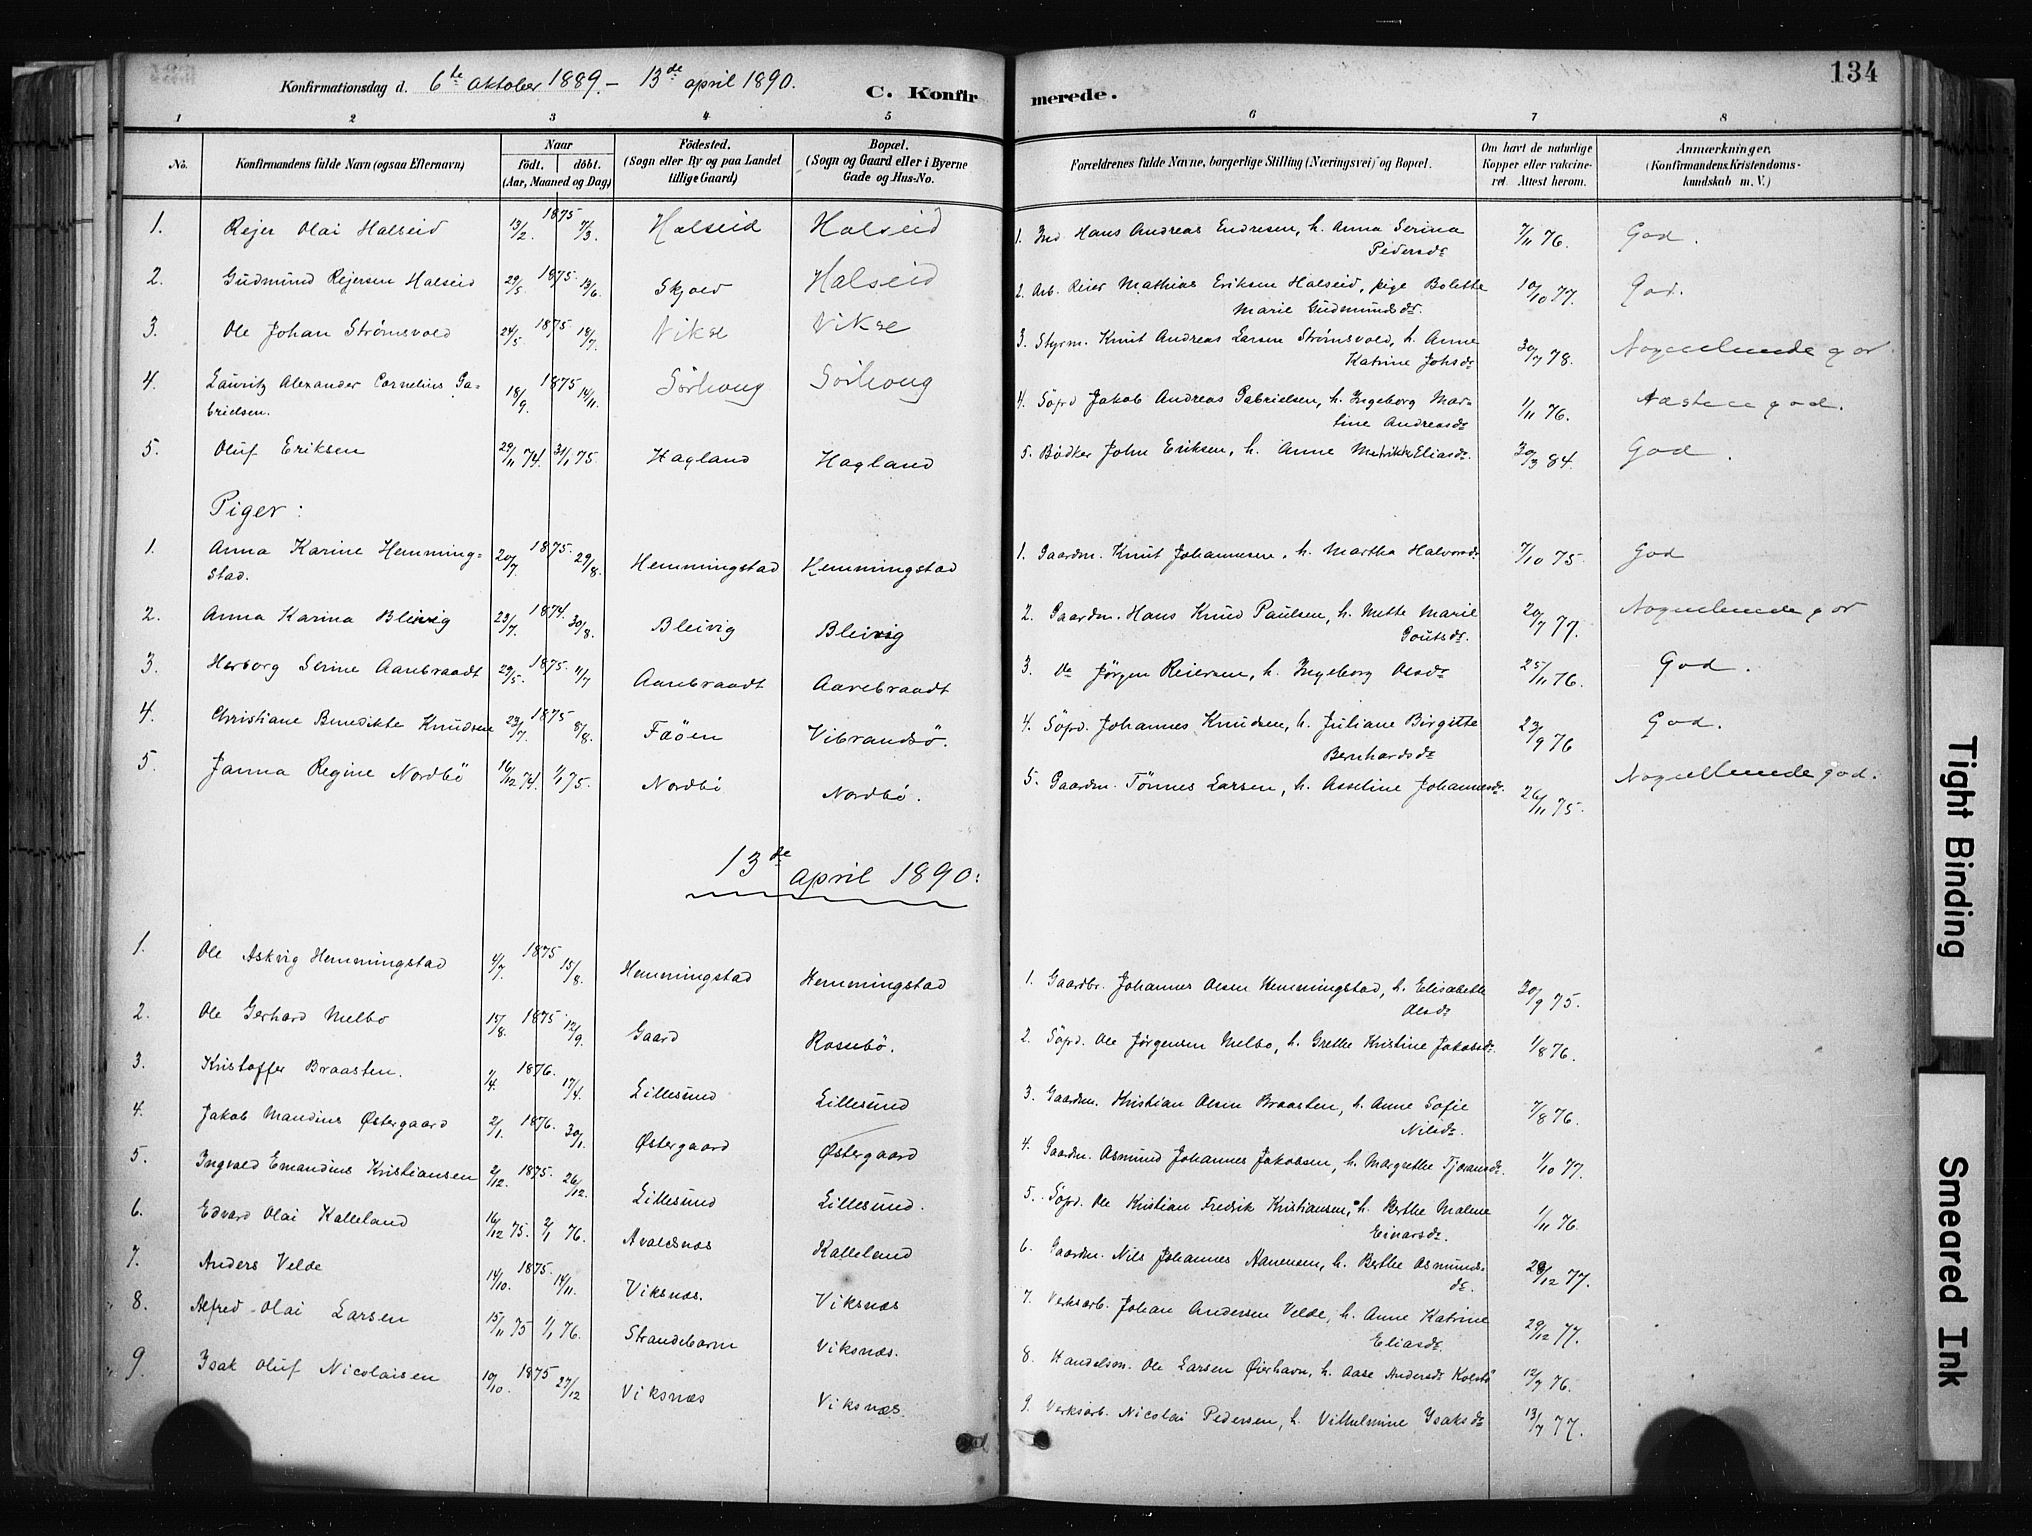 Konfirmationsdag d. 6te Oktober 1889. – 13de april 1890.
C. Konfirmerede.
134
1 2 3 4 5 6 7 8
No.
Konfirmandens fulde Navn (ogsaa Efternavn)
Naar
født. døbt.
(Aar, Maaned og Dag)
Fødested.
(Sogn eller By og paa Landet
tillige Gaard)
Bopæl.
(Sogn og Gaard eller i Byerne
Gade og Hus-No.
Forældrenes fulde Navne, borgerlige Stilling (Næringsvei) og Bopæl.
Om havt de naturlige
Kopper eller vakcine-
ret. Attest herom.
Anmærkninger,
(Konfirmandens Kristendoms-
kundskab m. V.)
1. Rejer Olai Halseid 13/2. 1875 7/3. Halseid Halseid 1. Ind Hans Andreas Endresen, h. Anna Serina 7/11 76. God.
Pedersdr
2. Gudmund Rejersen Halseid 29/5. 1875. 13/6. Skjold Halseid 2. Arb. Reier Mathias Eriksen Halseid, pige Bolette 10/10 77. God.
Marie Gudmundsdr.
3. Ole Johan Strømsvold 24/5. 1875. 18/7. Vikse Vikse 3. Styrm. Knut Andreas Larsen Strømsvold, h. Anne 30/7 78. Nogenlunde god
Katrine Johsdr
4. Lauritz Alexander Cornelius Ga-
brielsen. 18/9. 1875 14/11. Sørhoug Sørhoug 4. Söpd Jakob Andreas Gabrielsen, h. Ingeborg Mar- 1/11 76. Næsten god.
tine Andreasdr
5. Oluf Eriksen 29/11 74. 31/1 75. Hagland Hagland 5. Bødker John Eriksen, h. Anne Eliasdr. 30/3 84. God.
Piger:
1. Anna Karine Hemming-
stad. 20/7. 1875. 29/8. Hemmingstad Hemmingstad 1. Gaardm. Knut Johannesen, h. Martha Halvorsdr 7/10 75. God
2. Anna Karina Bleivig 23/7. 1874. 30/8. Bleivig Bleivig 2. Gaardm. Hans Knud Paulsen, h. Mette Marie 20/7 77. Nogenlunde god
Goutsdr.
3. Herborg Serine Aanbraadt 29/5. 1875. 4/7 Aanbraadt Aarebraadt 3. Do Jørgen Reiersen, h. Ingeborg Olsdr 25/11 76. God.
4. Christiane Benedikte Knudsen 23/7. 1875 8/8. Føöen Vibrandsö. 4. Söpd. Johannes Knudsen, h. Juliane Birgitte 23/9 76 God.
Bernhardsdr
5. Janna Regine Nordbö 16/12 74. 1/1 75. Nordbö Nordbö. 5. Gaardm. Tönnes Larsen, h. Asseline Johannesdr. 26/11 75. Nogenlunde god.
13de april 1890:
1. Ole Askvig Hemmingstad 4/7. 1875 15/8. Hemmingstad Hemmingstad 1. Gaardbr. Johannes Olsen Hemmingstad, h. Elisabeth 30/9 75.
Olsdr
2. Ole Gerhard Melbo 15/8. 1875 12/9. Gaard Rossebö. 2. Söpd. Ole Jörgensen Melbo, h. Grethe Kristine Jakobsdr. 1/8 76.
3. Kristoffer Braasten. 1/4. 1876. 17/4. Lillesund Lillesund 3. Gaardm. Kristian Olsen Braasten, h. Anne Sofie 7/8 76.
Nilsdr.
4. Jakob Mandius Østergaard 2/1. 1876. 30/1. Østergaard Østergaard 4. Gaardm. Asmund Johannes Jakobsen, h. Margrethe 1/10 77.
5. Ingvald Emandius Kristiansen 2/12. 1875. 26/12. Lillesund Lillesund. 5. Söpd. Ole Kristian Fredrik Kristiansen, h. Berthe Malene 1/11 76.
Einarsdr.
6. Edvard Olai Kalleland 16/12 75. 2/1 76. Avaldsnæs Kalleland 6. Gaardm. Nils Johannes Aanensen, h. Berthe Osmunds- 28/12 77.
dr.
7. Anders Velde 14/10. 1875. 14/11. Viksnæs. Viksnæs 7. Verksarb. Johan Andersen Velde, h. Anne Katrine 29/12 77.
Eliasdr.
8. Alfred Olai Larsen 15/11 75 1/1 76. Strandebarm Viksnæs. 8. Handelsm. Ole Larsen Øierhavn, h. Aase Andersdr Kolstö 12/7 76.
9. Isak Oluf Nicolaisen 10/10. 1875 27/12 Viksnæs Viksnæs. 9. Verksarb. Nicolai Pedersen, h. Vilhelmine Isaksdr 13/7 77.
Tight Binding
Smeared Ink